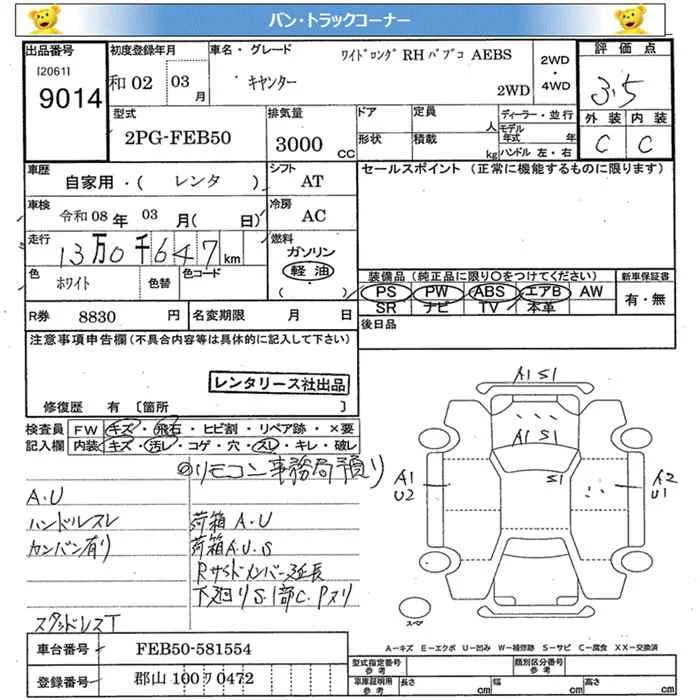 バン・トラックコーナー
出品番号
I20611
9014
初度登録年月
和02 03月
車名・グレード
ワイドロング RH パブコ AEBS
キャンター
2WD
2WD・4WD
評価点
3.5
外装 内装
C C
型式
2PG-FEB50
排気量
3000 CC
ドア
形状
定員 人
積載 kg
ディーラー・並行
モデル年式 年
ハンドル 左・右
車歴
自家用・( レンタ )
シフト
AT
車検
令和08年 03月( 日)
冷房
AC
走行
13万0千647km
燃料
ガソリン
軽油
( )
色
ホワイト
色替
色コード
R券 8830 円
名変期限 月 日
セールスポイント (正常に機能するものに限ります)
装備品(純正品に限り○をつけてください)
PS PW ABS エアB AW
SR ナビ TV 本革
新車保証書
有・無
後日品
注意事項申告欄(不具合内容等は具体的に記入して下さい)
レンタリース社出品
修復歴 有 〔箇所 〕
検査員記入欄
FW キズ・飛石・ヒビ割・リペア跡・×要
内装 キズ・汚レ・コゲ・穴・スレ・キレ・破レ
リモコン事務局預り
A.U
ハンドルスレ
カンバン有り
スタッドレスT
荷箱 A.U
荷箱 A.U.S
Rサイドメンバー延長
下廻りS.1部C.Pスリ
A1 S1
A1 S1
S1
A1
U2
A2
U1
スペア
A-キズ E-エクボ U-凹み W-補修跡 S-サビ C-腐食 XX-交換済
車台番号 FEB50-581554
登録番号 郡山 100 ワ 0472
型式指定番号 参考
類別区分番号 参考
車庫証明用 参考
長さ cm
幅 cm
高さ cm